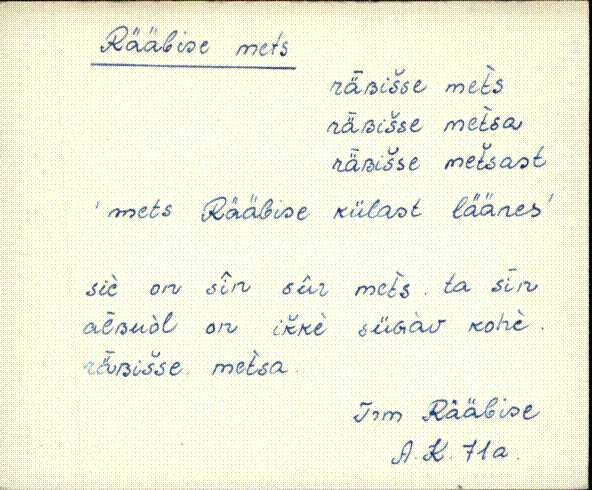 Rääbise mets
rǟʙišse met̀s
rǟʙišse met̀sa
rǟʙišse met̀sast
'mets Rääbise külast läänes'
siè on sîn sûr met̀s. ta sīn
aēʙuòl on ikkè süɢàv kohè.
rǟʙišse met̀sa.
Trm Rääbise
A. K. 71a.